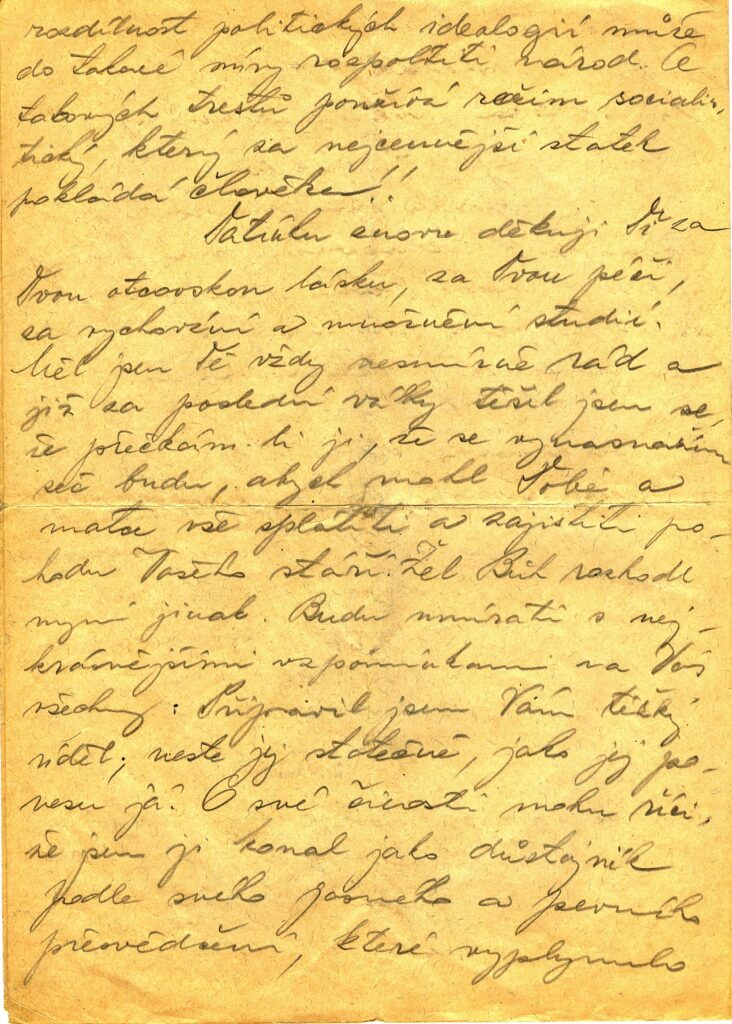 rozdílnost politických ideologií může
do takové míry rozpoltiti národ. A
takových trestů používá režim socialis-
tický, který za nejcennější statek
pokládá člověka!!
Tatíčku znovu děkuji Ti za
Tvou otcovskou lásku, za Tvou péči,
za vychování a umožnění studií.
Měl jsem Tě vždy nesmírně rád a
již za poslední války těšil jsem se,
že přečkám-li ji, že se vynasnažím
seč budu, abych mohl Tobě a
matce vše splatiti a zajistiti po-
hodu Vašeho stáří. Žel Bůh rozhodl
nyní jinak. Budu umírati s nej-
krásnějšími vzpomínkami na Vás
všechny. Připravil jsem Vám těžký
úděl; neste jej statečně, jako jej po-
nesu já. O své činnosti mohu říci,
že jsem ji konal jako důstojník
podle svého jasného a pevného
přesvědčení, které vyplynulo